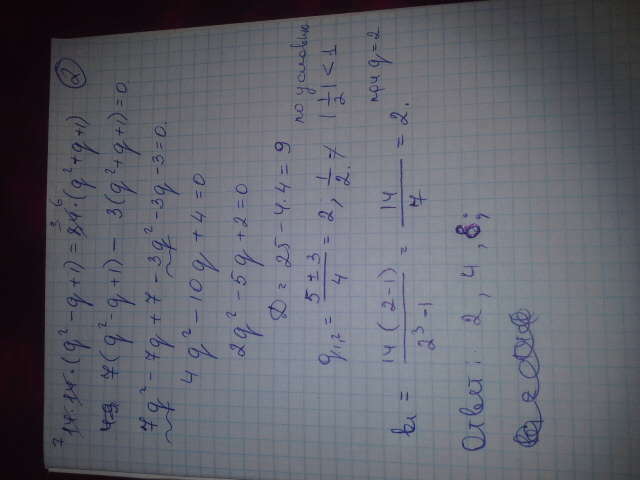 ②
14·14·(q² - q + 1) = 84·(q² + q + 1)
7(q² - q + 1) - 3(q² + q + 1) = 0
7q² - 7q + 7 - 3q² - 3q - 3 = 0.
4q² - 10q + 4 = 0
2q² - 5q + 2 = 0
D = 25 - 4·4 = 9
q₁,₂ = (5 ± 3)/4 = 2; 1/2 ≠ по условию |1/2| < 1
b₁ = 14(2-1)/(2³-1) = 14/7 = 2. при q=2
Ответ: 2, 4, 8;